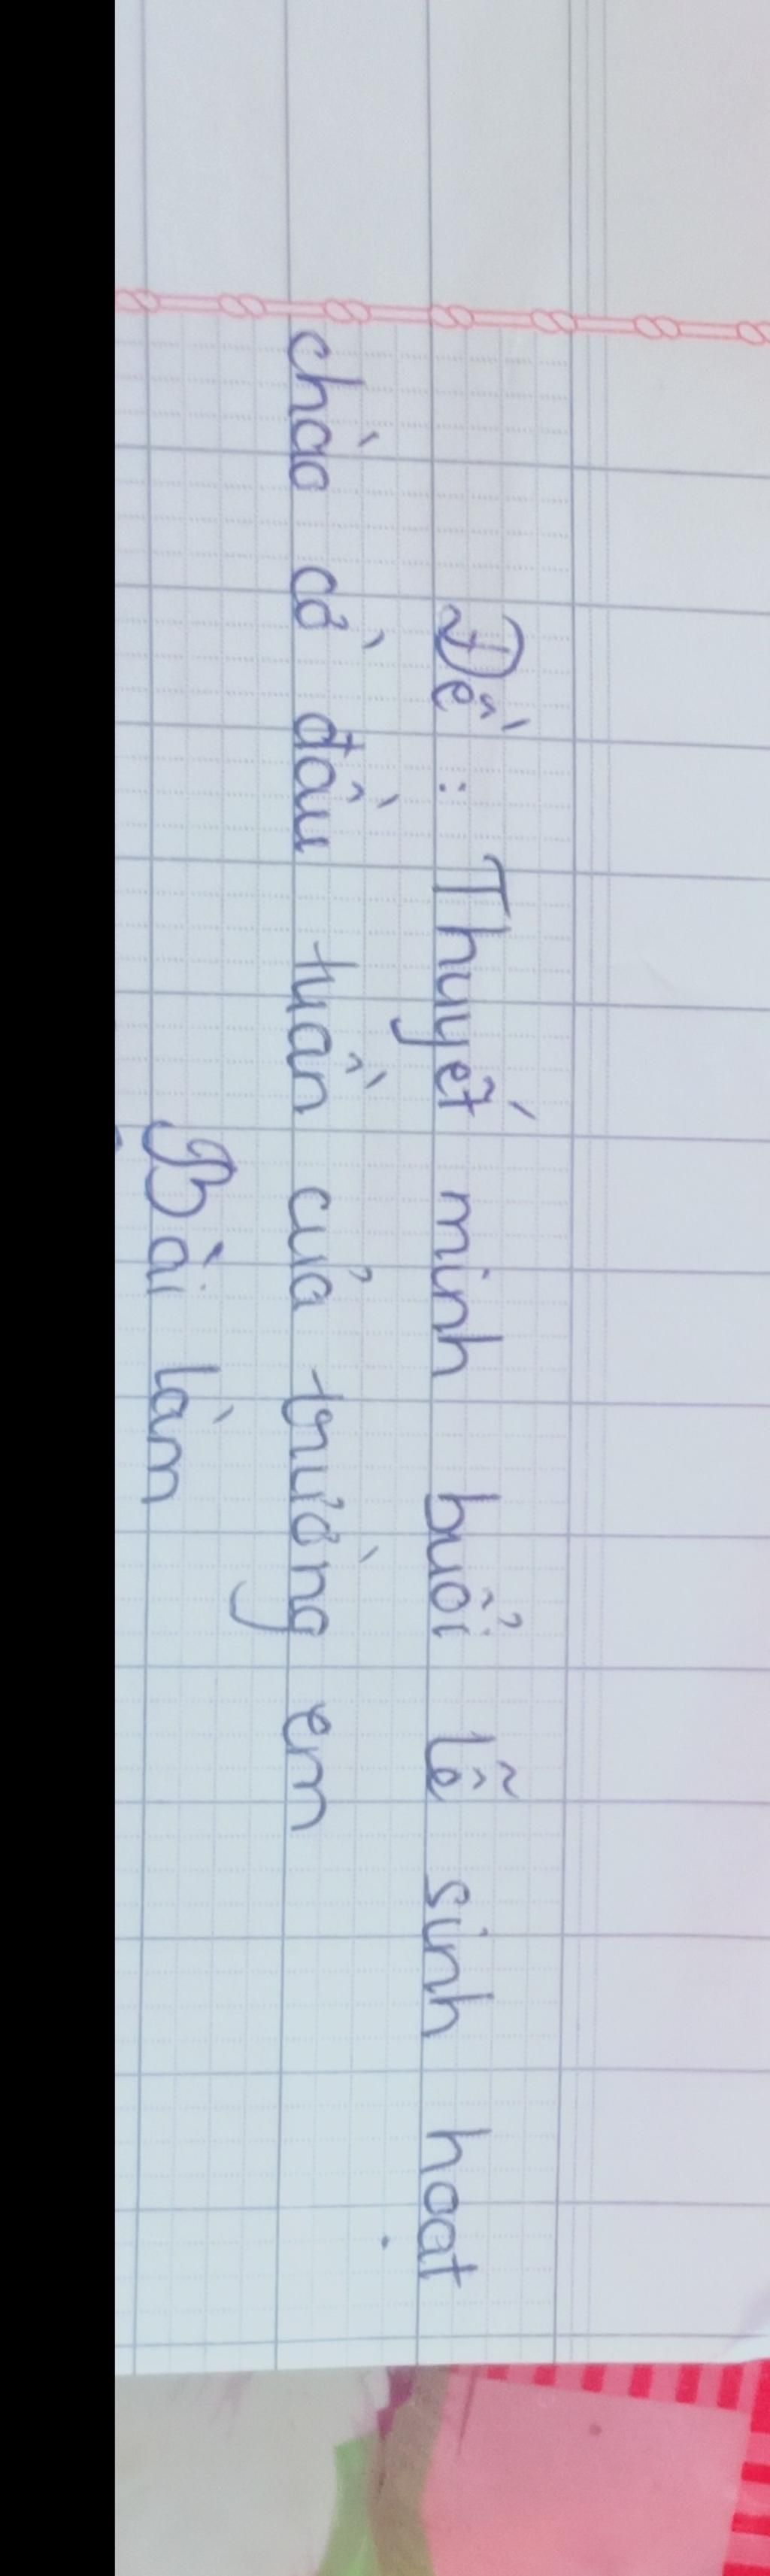 Đề : Thuyết minh buổi lễ sinh hoạt
chào cờ đầu tuần của trường em
Bài làm